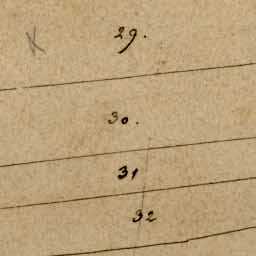 K 29.
30.
31
32